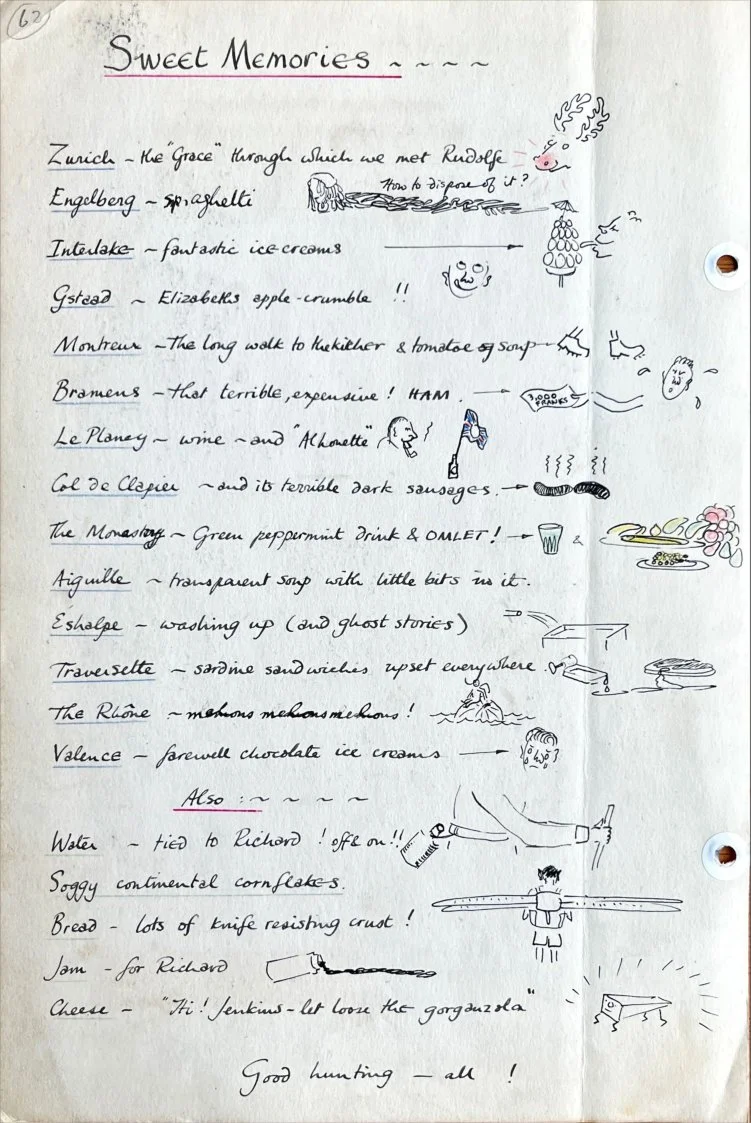 62
Sweet Memories ~ ~ ~ ~
Zurich - the "Grace" through which we met Rudolfe
Engelberg ~ spaghetti How to dispose of it?
Interlake ~ fantastic ice creams
Gstaad ~ Elizabeths apple-crumble !!
Montreux - The long walk to the kitchen & tomatoe soup
Bramens - that terrible, expensive! HAM.
3,000 FRANKS
Le Planey - wine ~ and "Alhouette"
Col de Clapier ~ and its terrible dark sausages.
The Monastry ~ Green peppermint drink & OMLET! &
Aiguille ~ transparent soup with little bits in it.
Eshalpe - washing up (and ghost stories)
Traversette - sardine sandwiches upset everywhere.
The Rhône ~ melons melons melons!
Valence - farewell chocolate ice creams
Also :~ ~ ~ ~
Water - tied to Richard ! off & on!!
Soggy continental cornflakes.
Bread - lots of knife resisting crust !
Jam - for Richard
Cheese - "Hi! Jenkins - let loose the gorganzola"
Good hunting - all !